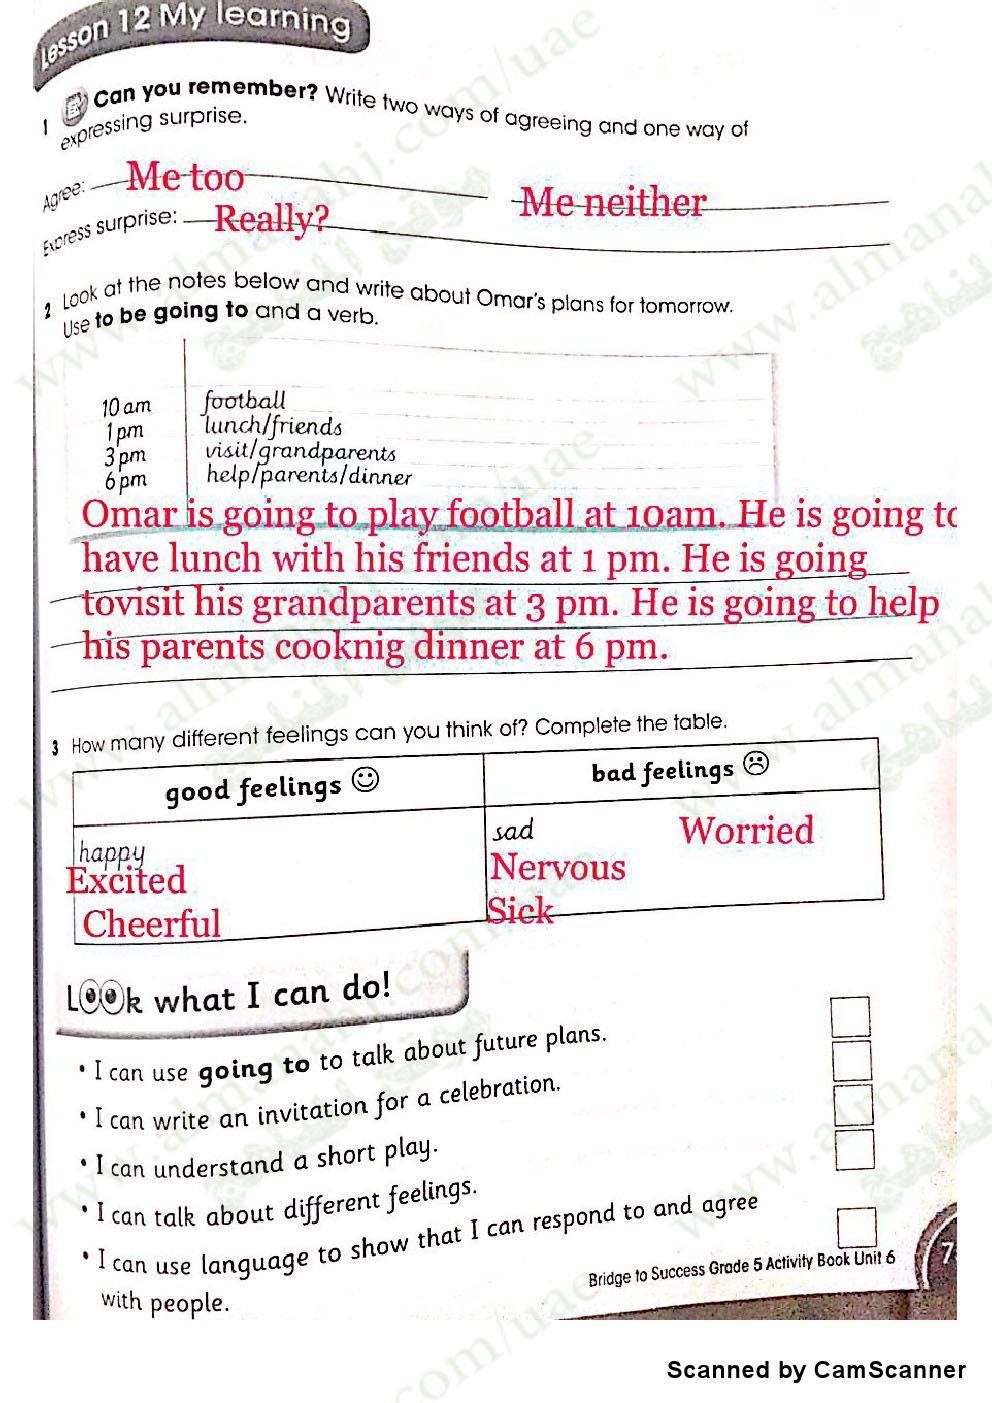 Lesson 12 My learning
1 Can you remember? Write two ways of agreeing and one way of
expressing surprise.
Agree: Me too Me neither
Express surprise: Really?
2 Look at the notes below and write about Omar's plans for tomorrow.
Use to be going to and a verb.
10 am football
1 pm lunch/friends
3 pm visit/grandparents
6 pm help/parents/dinner
Omar is going to play football at 10am. He is going to
have lunch with his friends at 1 pm. He is going
tovisit his grandparents at 3 pm. He is going to help
his parents cooknig dinner at 6 pm.
3 How many different feelings can you think of? Complete the table.
good feelings bad feelings
happy sad Worried
Excited Nervous
Cheerful Sick
Look what I can do!
• I can use going to to talk about future plans.
• I can write an invitation for a celebration.
• I can understand a short play.
• I can talk about different feelings.
• I can use language to show that I can respond to and agree
with people.
Bridge to Success Grade 5 Activity Book Unit 6
Scanned by CamScanner
www.almanahj.com/uae